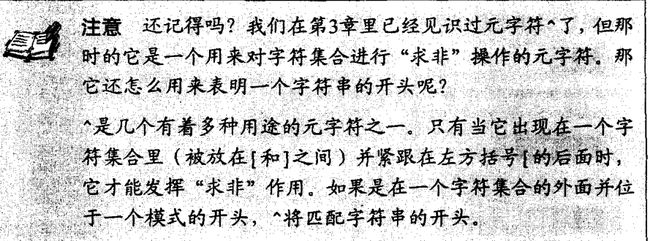 注意 还记得吗？我们在第3章里已经见识过元字符^了，但那
时的它是一个用来对字符集合进行“求非”操作的元字符。那
它还怎么用来表明一个字符串的开头呢？
^是几个有着多种用途的元字符之一。只有当它出现在一个字
符集合里（被放在[和]之间）并紧跟在左方括号[的后面时，
它才能发挥“求非”作用。如果是在一个字符集合的外面并位
于一个模式的开头，^将匹配字符串的开头。